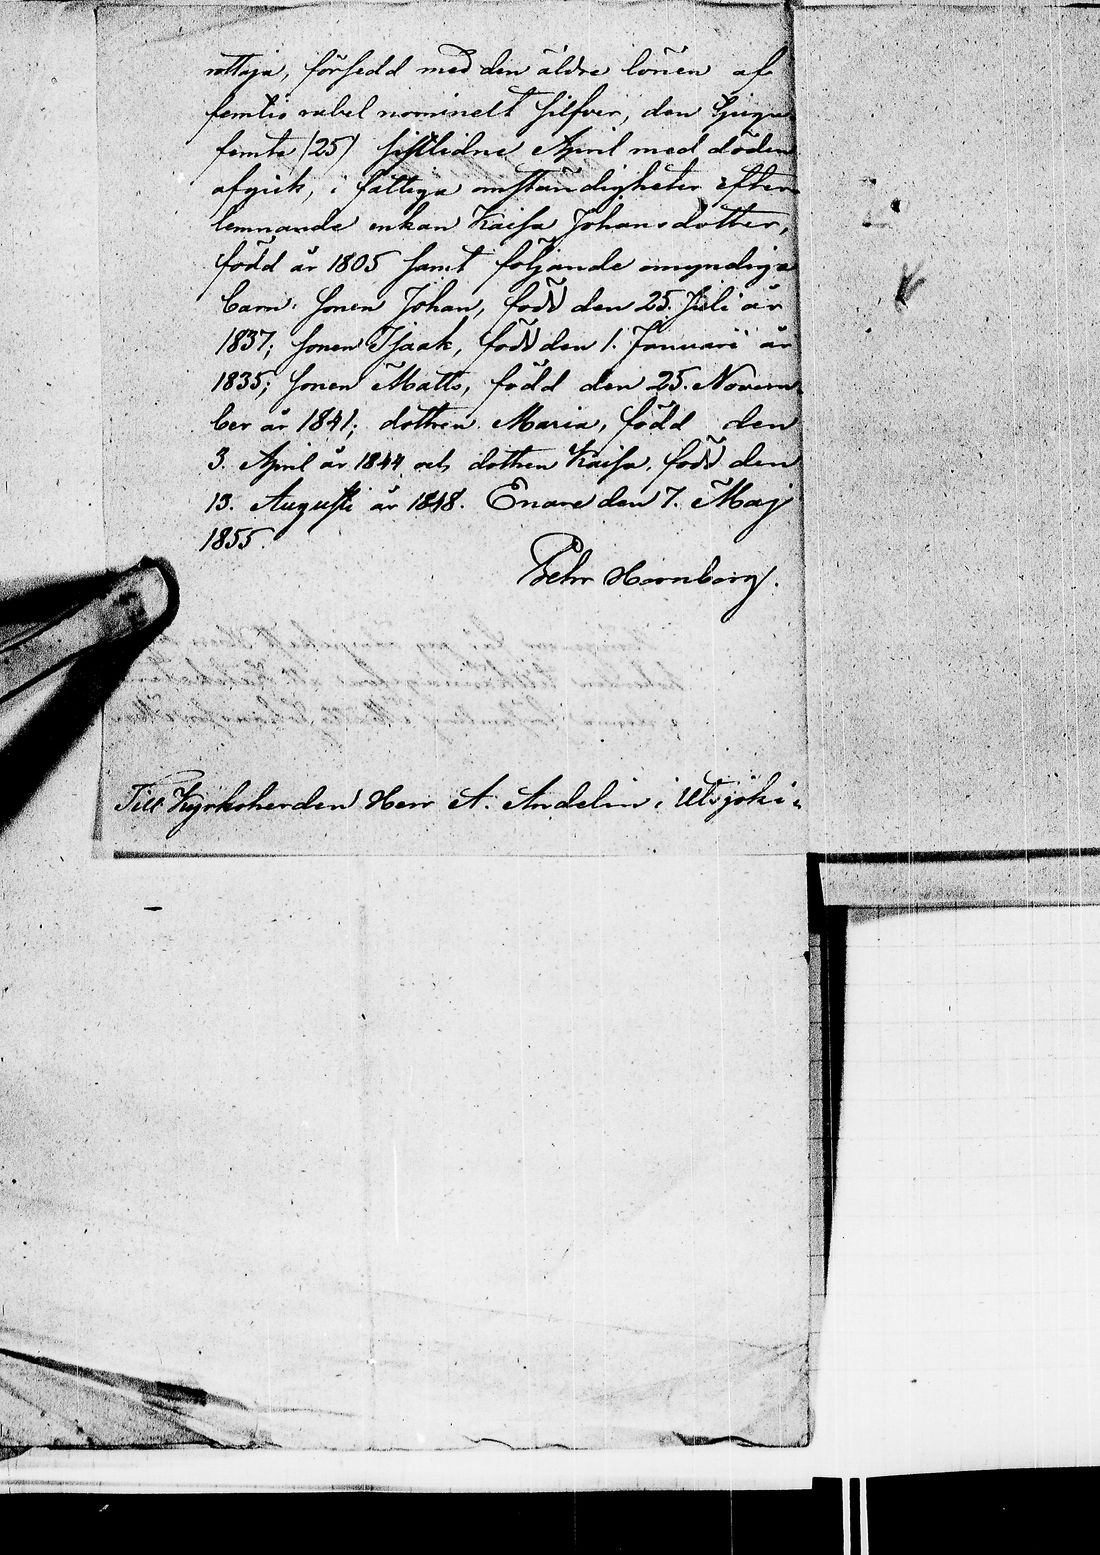 försedd med den äldre lönen af
femtio rubel nominelt silfver, den tjugu
femte (25) sistlidne April med döden
afgick, i fattiga omständigheter efter
lemnande enkan Kaisa Johansdotter,
född år 1805 samt följande omyndiga
barn: sonen Johan, född den 25. Juli år
1837; sonen Isaak, född den 1. Januari år
1835; sonen Matts, född den 25. Novem
ber år 1841; dottren Maria, född den
3. April år 1844 och dottren Kaisa, född den
13. Augusti år 1848. Enare den 7. Maj
1855.
Pehr Hornborg.
Till Kyrkoherden Herr A. Andelin i Utsjoki